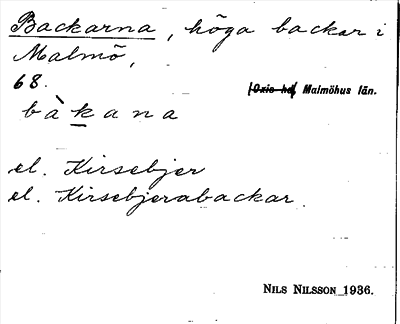 Backarna, höga backar i
Malmö,
68. Oxie hd Malmöhus län.
bàkana
el. Kirsebjer
el. Kirsebjerabackar.
NILS NILSSON 1936.